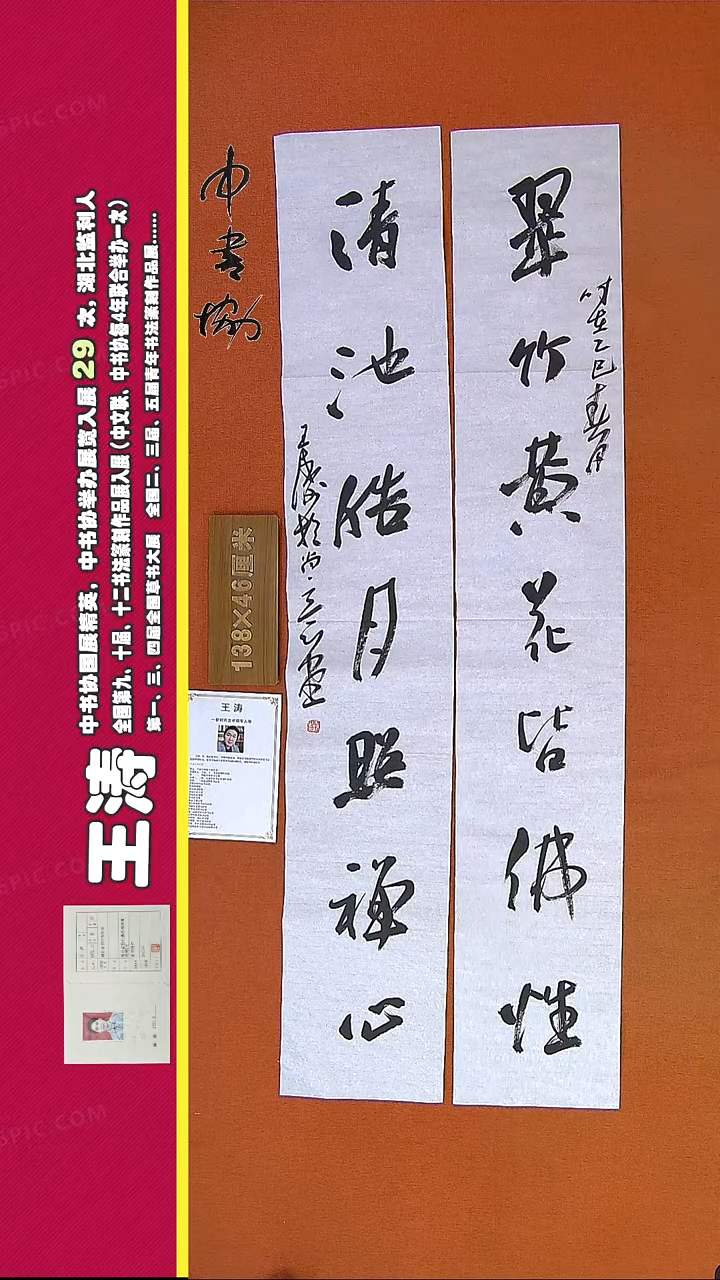 翠竹黄花皆佛性
时在乙巳春月
清池皓月照禅心
王涛书于尚立心堂
中书协
138×46厘米
王涛
王涛
中书协国展精英，中书协举办展览入展29次，湖北监利人
全国第九、十届、十二书法篆刻作品展入展（中文联、中书协每4年联合举办一次）
第一、三、四届全国草书大展 全国二、三届、五届青年书法篆刻作品展……